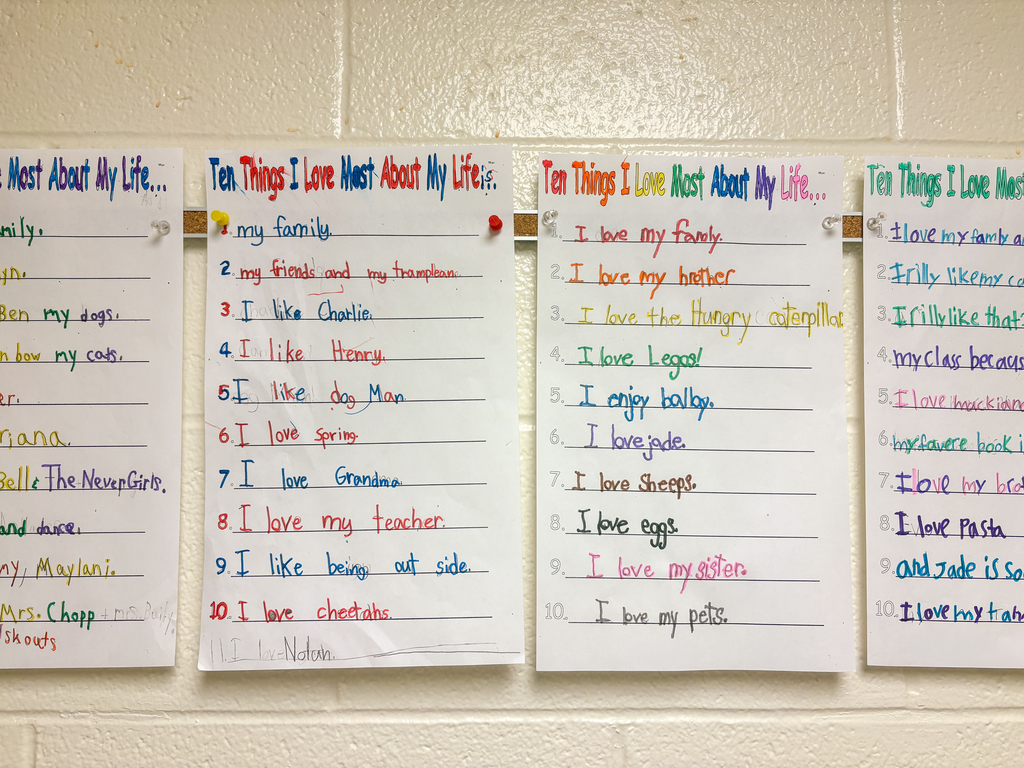 Most About My Life...
mily.
yn.
Ben my dogs.
n bow my cats.
er.
riana.
Bell & The Never Girls.
and dance.
my, Maylani.
Mrs. Chopp + mrs.
skouts
Ten Things I Love Most About My Life is.
1. my family.
2. my friends and my tramplean
3. I like Charlie.
4. I like Henry.
5. I like dog Man
6. I love spring.
7. I love Grandma
8. I love my teacher.
9. I like being out side.
10. I love cheetahs.
11. I love Notah.
Ten Things I Love Most About My Life...
1. I love my famly.
2. I love my brother
3. I love the Hungry caterpillar
4. I love Legos!
5. I enjoy ballby.
6. I love jade.
7. I love Sheeps.
8. I love eggs.
9. I love my sister.
10. I love my pets.
Ten Things I Love Most
1. I love my famly an
2. I rilly like my ca
3. I rilly like that
4. my class becaus
5. I love
6. my favere book i
7. I love my bro
8. I love Pasta
9. and Jade is so
10. I love my